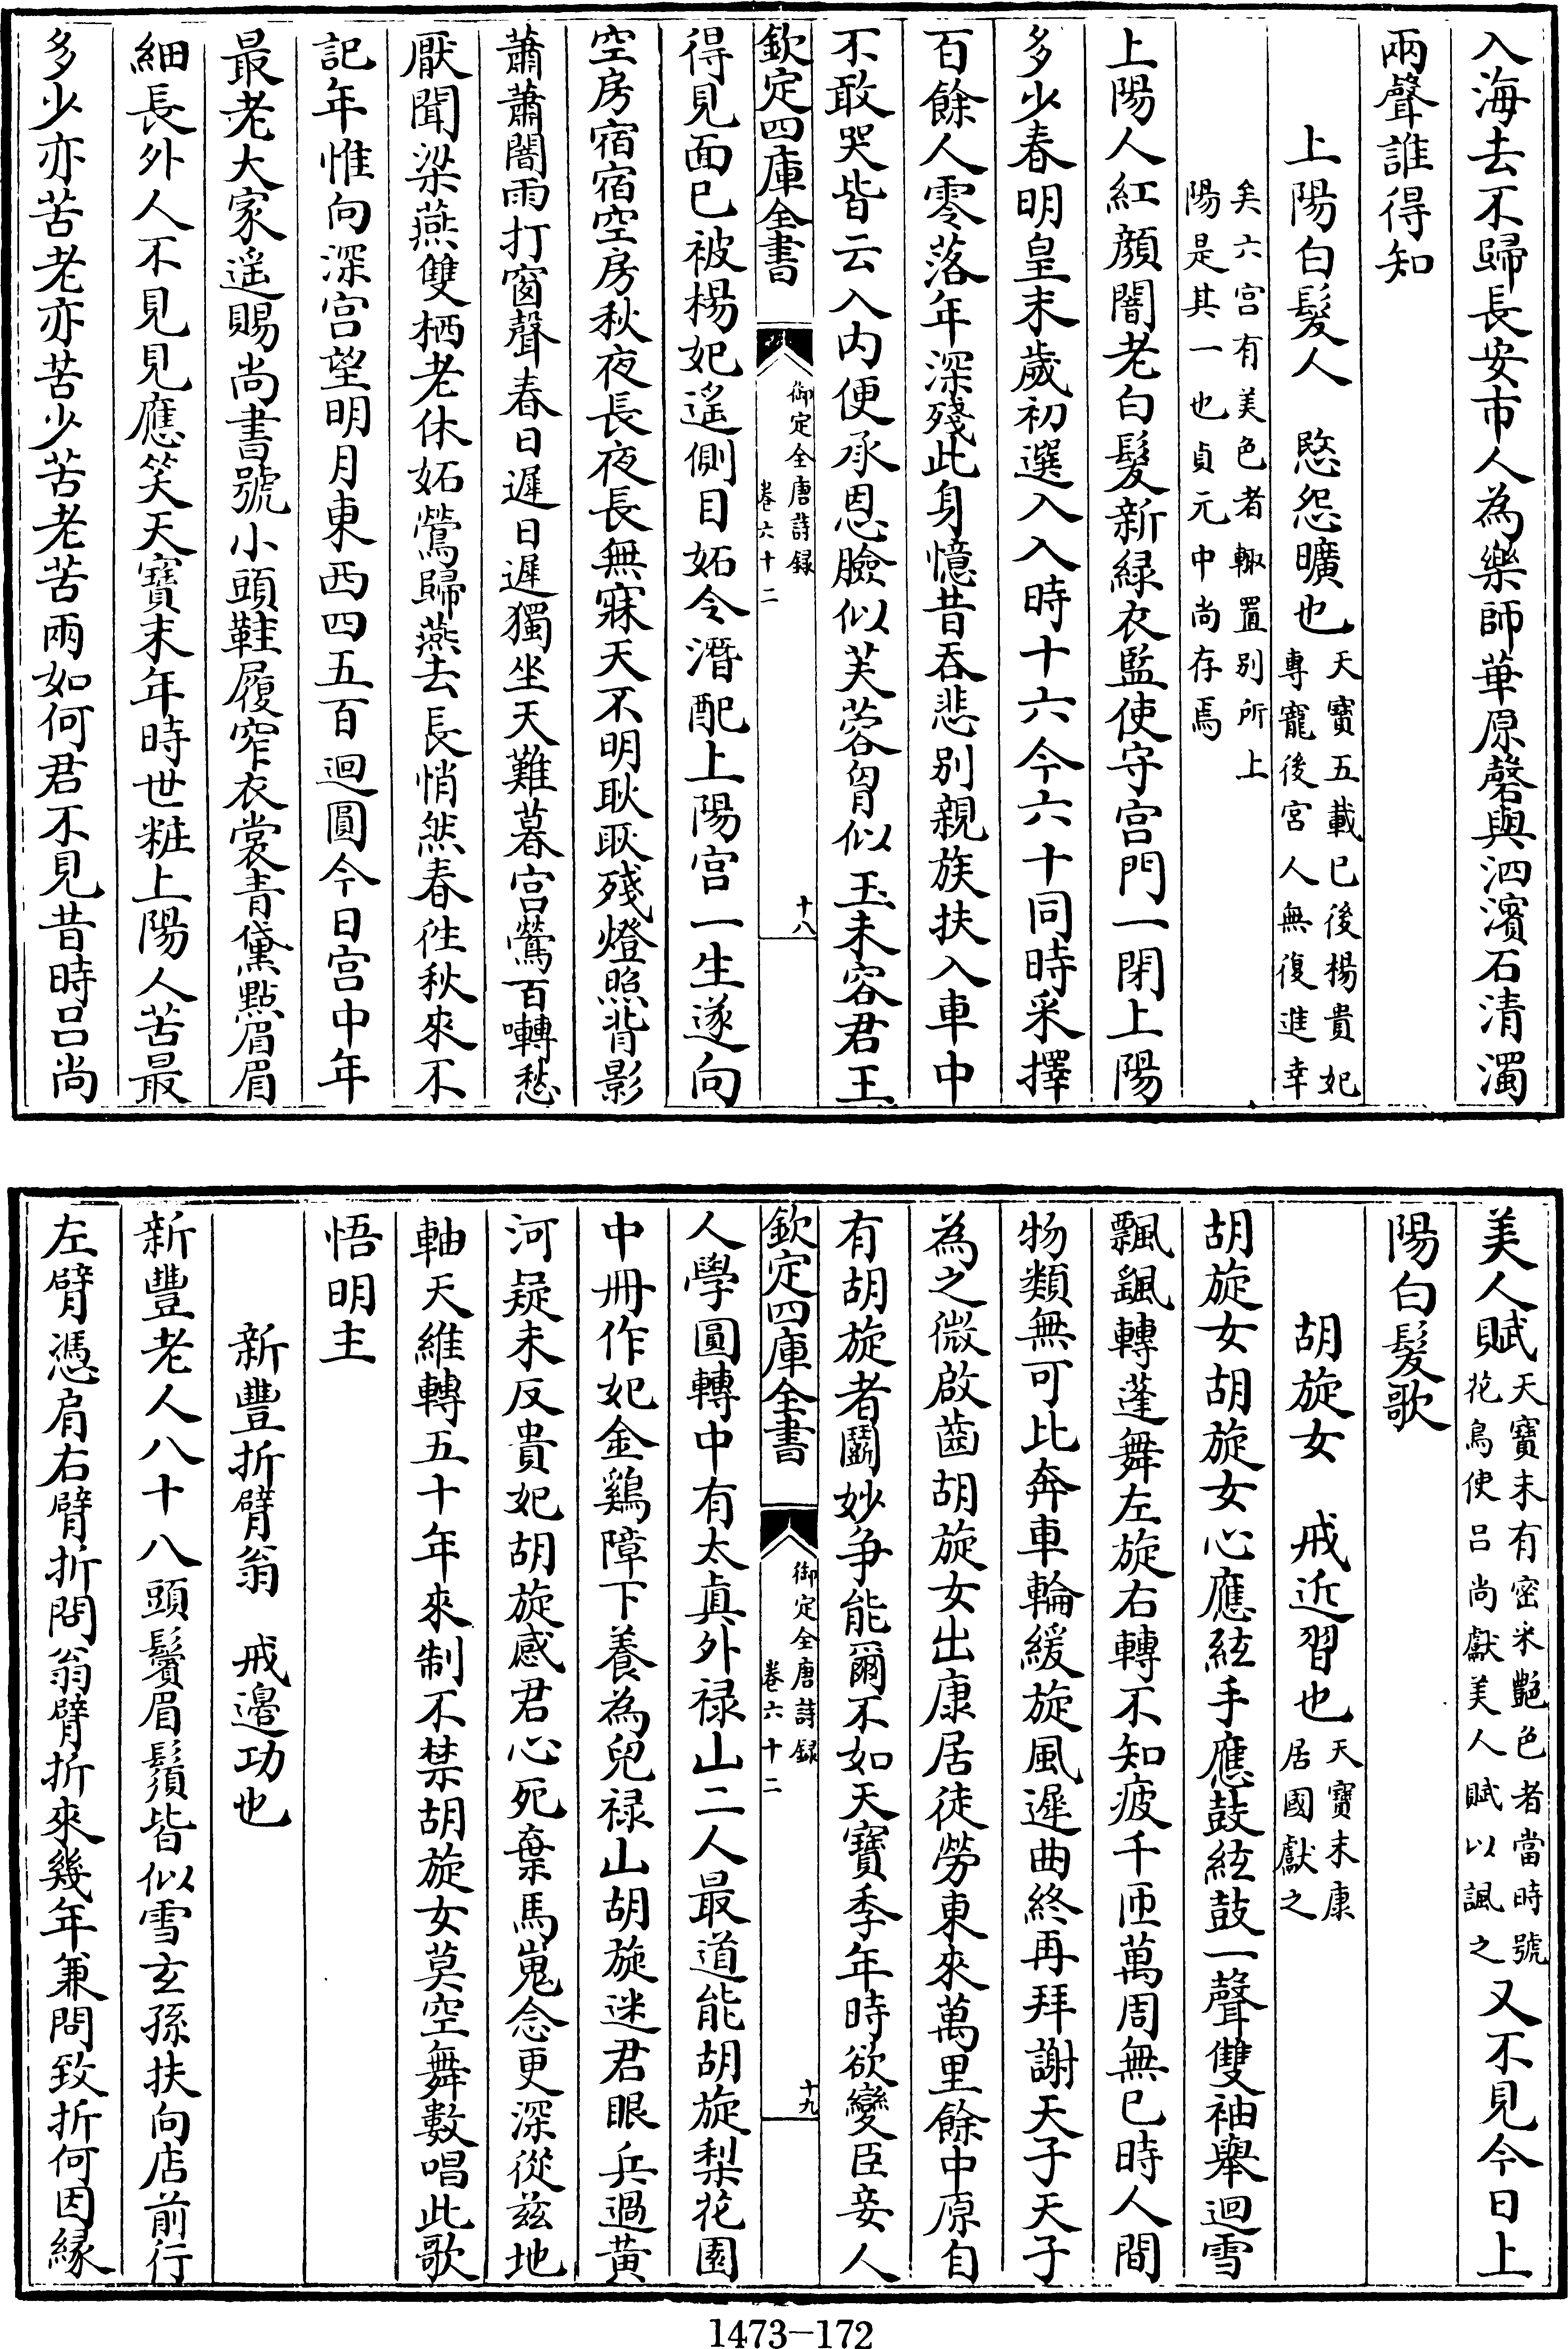 入海去不歸長安市人為樂師華原磬與泗濱石清濁
兩聲誰得知
上陽白髮人　愍怨曠也天寶五載已後楊貴妃
專寵後宮人無復進幸
矣六宮有美色者輙置别所上
陽是其一也貞元中尚存焉
上陽人紅顔闇老白髮新緑衣監使守宫門一閉上陽
多少春明皇末歲初選入入時十六今六十同時采擇
百餘人零落年深殘此身憶昔吞悲别親族扶入車中
不敢哭皆云入内便承恩臉似芙蓉胷似玉未容君王
欽定四庫全書
御定全唐詩録
卷六十二
十八
得見面已被楊妃遙側目妬令潛配上陽宫一生遂向
空房宿宿空房秋夜長夜長無寐天不明耿耿殘燈照背影
蕭蕭闇雨打窗聲春日遲日遲獨坐天難暮宫鶯百囀愁
厭聞梁燕雙栖老休妬鶯歸燕去長悄然春徃秋來不
記年惟向深宫望明月東西四五百迴圓今日宫中年
最老大家遥賜尚書號小頭鞋履窄衣裳青黛點眉眉
細長外人不見見應笑天寶末年時世粧上陽人苦最
多少亦苦老亦苦少苦老苦兩如何君不見昔時吕尚
美人賦天寶末有密采艶色者當時號
花鳥使吕尚獻美人賦以諷之又不見今日上
陽白髮歌
胡旋女　戒近習也天寶末康
居國獻之
胡旋女胡旋女心應絃手應鼓絃鼓一聲雙袖舉迴雪
飄颻轉蓬舞左旋右轉不知疲千匝萬周無已時人間
物類無可比奔車輪緩旋風遲曲終再拜謝天子天子
為之微啟齒胡旋女出康居徒勞東來萬里餘中原自
有胡旋者鬬妙争能爾不如天寶季年時欲變臣妾人
欽定四庫全書
御定全唐詩録
卷六十二
十九
人學圓轉中有太真外禄山二人最道能胡旋梨花園
中冊作妃金鷄障下養為兒禄山胡旋迷君眼兵過黄
河疑未反貴妃胡旋感君心死棄馬嵬念更深從兹地
軸天維轉五十年來制不禁胡旋女莫空舞數唱此歌
悟明主
新豐折臂翁　戒邉功也
新豐老人八十八頭鬢眉鬚皆似雪玄孫扶向店前行
左臂憑肩右臂折問翁臂折來幾年兼問致折何因縁
1473-172